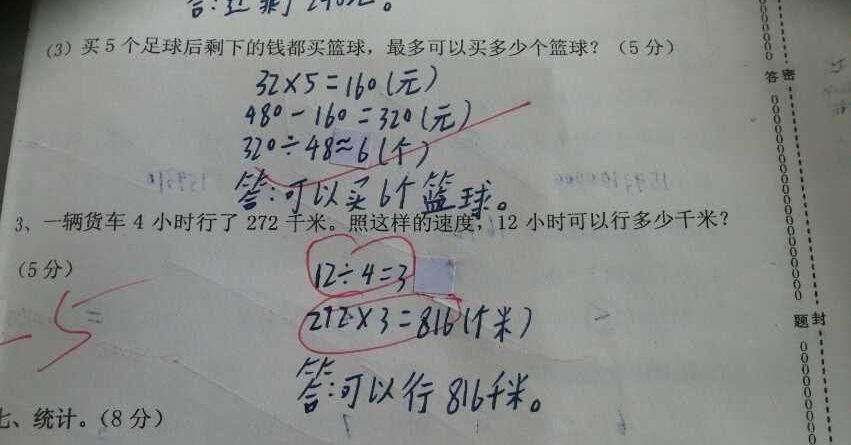 答:还剩
(3)买5个足球后剩下的钱都买篮球，最多可以买多少个篮球？（5分）
32×5=160(元)
480-160=320(元)
320÷48≈6(个)
答:可以买6个篮球。
3、一辆货车4小时行了272千米。照这样的速度，12小时可以行多少千米？
（5分）
12÷4=3
272×3=816(千米)
-5
答:可以行816千米。
七、统计。（8分）
密
答
封
题